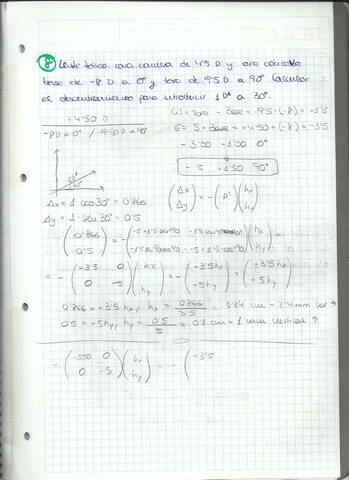 8 Lente tórica, cara convexa de 4'5 D y cara cóncava
base de -8 D a 0° y toro de 9'5 D a 90° Calcular
el descentramiento para introducir 1 DΔ a 30°.
+4'50 D
-8 D a 0° / -9'5 D a 90°
Cil = Toro - Base = -9'5 - (-8) = -1'5
E = S + Base = +4'50 + (-8) = -3'5
-3'50 -1'50 0°
-5 +1'50 90°
Δx = 1 cos 30° = 0'866
Δy = 1 · sen 30° = 0'5
(Δx Δy) = -(P) (hx hy)
(0'866 0'5) = -(-5+1'5 -1'5 -1'5 -5+1'5) (hx hy) =
= -(-3'5 0 0 -5) (hx hy) = -(-3'5hx -5hy) = (+3'5hx +5hy)
0'866 = +3'5 hx, hx = 0'866 / 3'5 = 0'24 cm = 2'4 mm hor →
0'5 = +5hy, hy = 0'5 / 5 = 0'1 cm = 1 mm vertical ↑
-(-3'50 0 0 -5) (hx hy) = -(-3'5